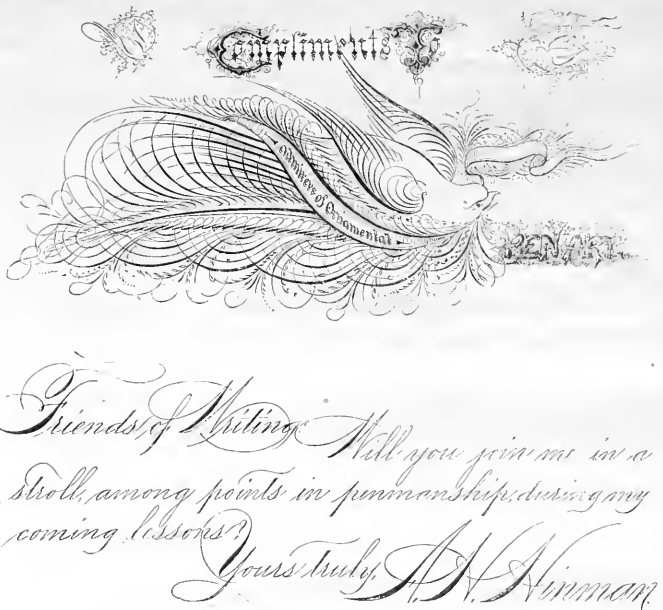 Compliments To
Admirers of Ornamental
PEN ART
Friends of Writing: Will you join me in a
stroll, among points in penmanship, during my
coming lessons?
Yours truly, A. H. Hinman